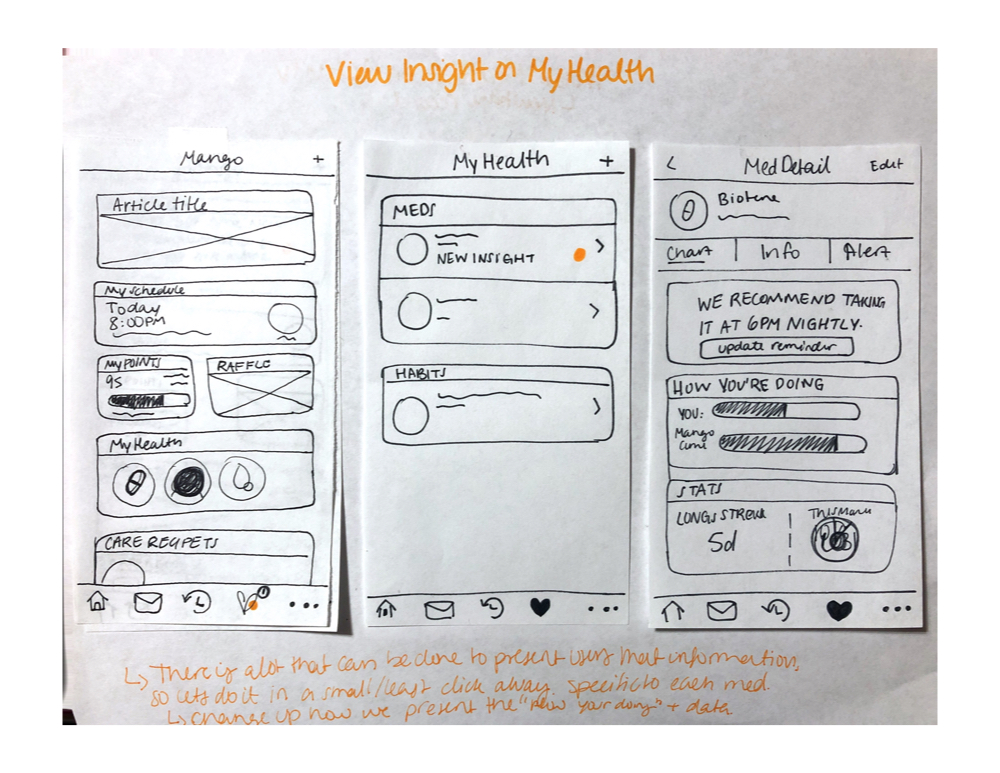 View Insight on My Health
Mango +
Article title
My schedule
Today
8:00PM
MY POINTS
95
RAFFLE
My Health
CARE REQPETS
My Health +
MEDS
NEW INSIGHT
HABITS
< Med Detail Edit
Biotene
Chart | Info | Alert
WE RECOMMEND TAKING
IT AT 6PM NIGHTLY.
update reminder
HOW YOU'RE DOING
YOU:
Mango
STATS
LONGS STREAK
5d
There is alot that can be done to present users that information,
so lets do it in a small/least click away. specific to each med.
change up how we present the "how your doing" + data